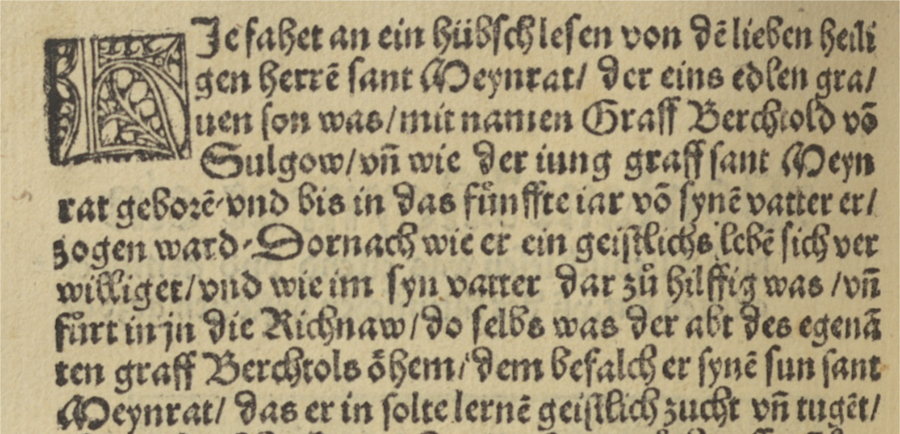 HJe fahet an ein hübsch lesen von dē lieben heili
gen herrē sant Meynrat/ der eins edlen gra/
uen son was/mit namen Graff Berchtold vō
Sulgow/vn̄ wie der iung graff sant Meyn
rat geborē·vnd bis in das fu̇nffte iar vō synē vatter er/
zogen ward·Dornach wie er ein geistlichs lebē sich ver
williget/vnd wie im syn vatter dar zů hilffig was /vn̄
fůrt in jn die Richnaw/do selbs was der abt des egenā
ten graff Berchtols öhem/dem befalch er synē sun sant
Meynrat/ das er in solte lernē geistlich zucht vn̄ tugēt/